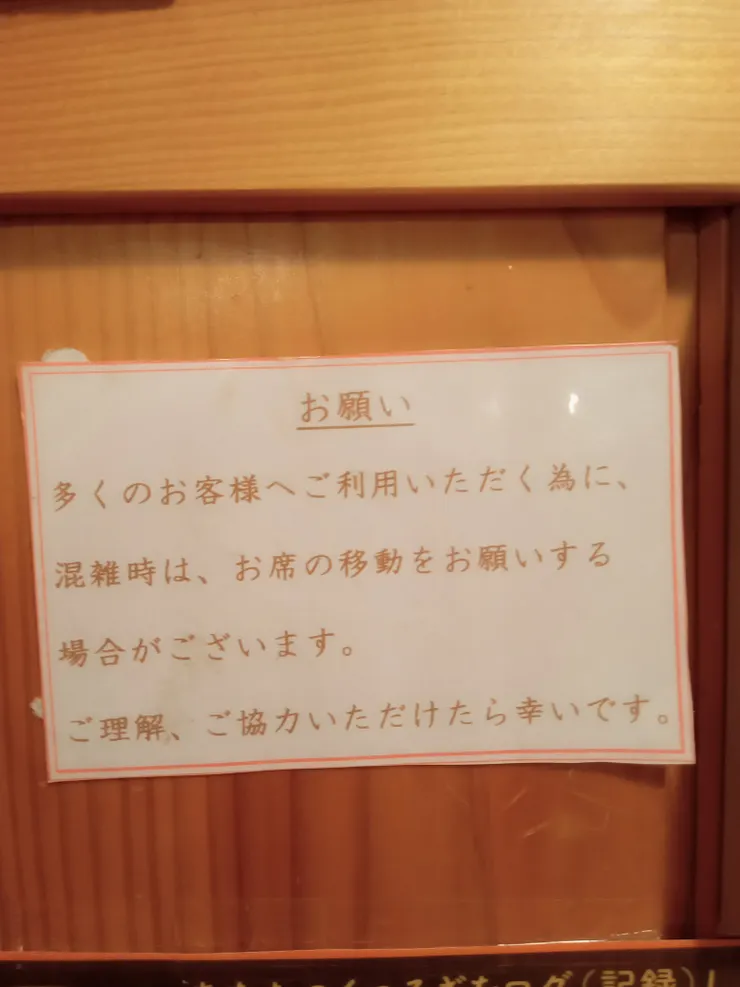 お願い
多くのお客様へご利用いただく為に、
混雑時は、お席の移動をお願いする
場合がございます。
ご理解、ご協力いただけたら幸いです。
ログ(記録)し